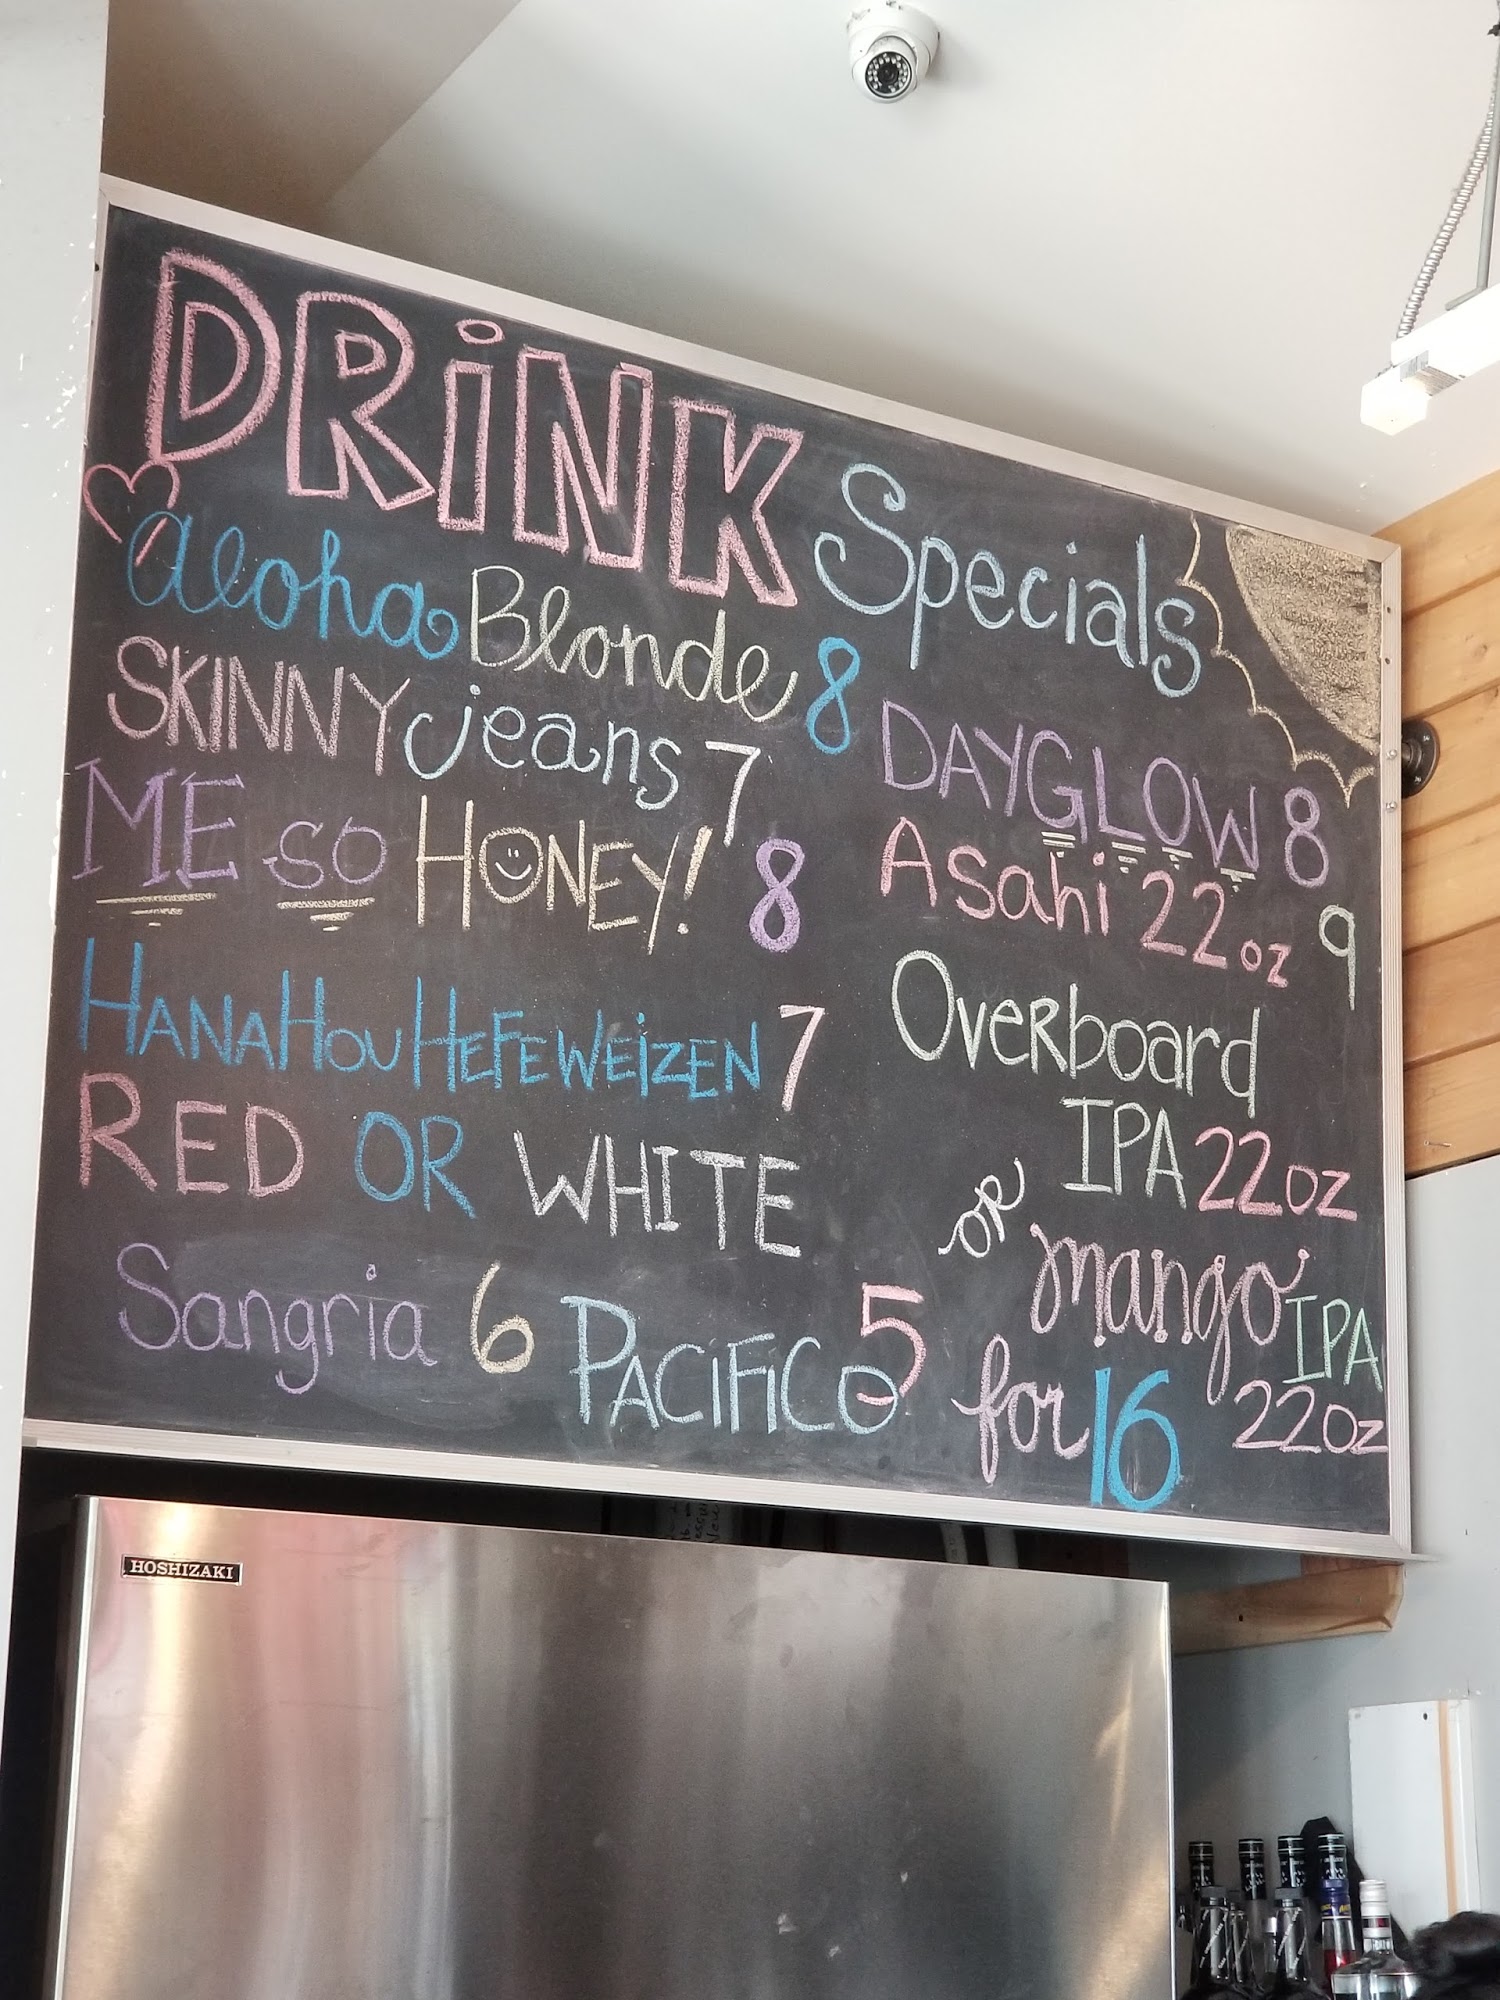 DRiNK Specials
Aloha Blonde 8
SKINNY jeans 7
ME SO HONEY! 8
HANA HOU HEFEWEiZEN 7
RED OR WHITE
Sangria 6
PACiFiCO 5
DAYGLOW 8
Asahi 22oz 9
Overboard
IPA 22oz
OR mango IPA
22oz
for 16
HOSHIZAKI